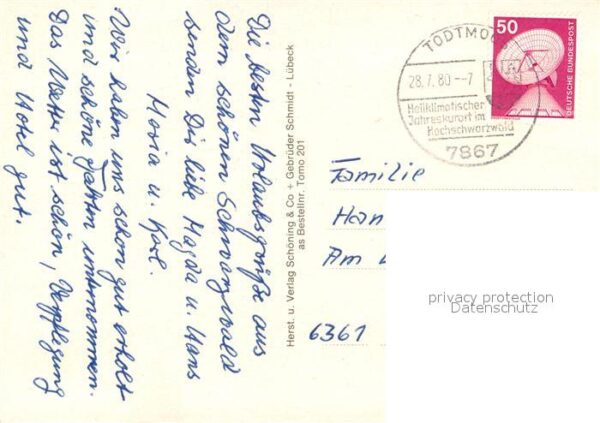 Die besten Urlaubsgrüße aus
dem schönen Schwarzwald
senden Dir liebe Magda u. Hans
Maria u. Karl.
Wir haben uns schon gut erholt
und schöne Fahrten unternommen.
Das Wetter ist schön, Verpflegung
und Hotel gut.
Herst. u. Verlag Schöning & Co + Gebrüder Schmidt - Lübeck
as Bestellnr. Tomo 201
50
DEUTSCHE BUNDESPOST
TODTMOOS
28.7.80--7
Heilklimatischer
Jahreskurort im
Hochschwarzwald
7867
Familie
Han
Am
6361
privacy protection
Datenschutz